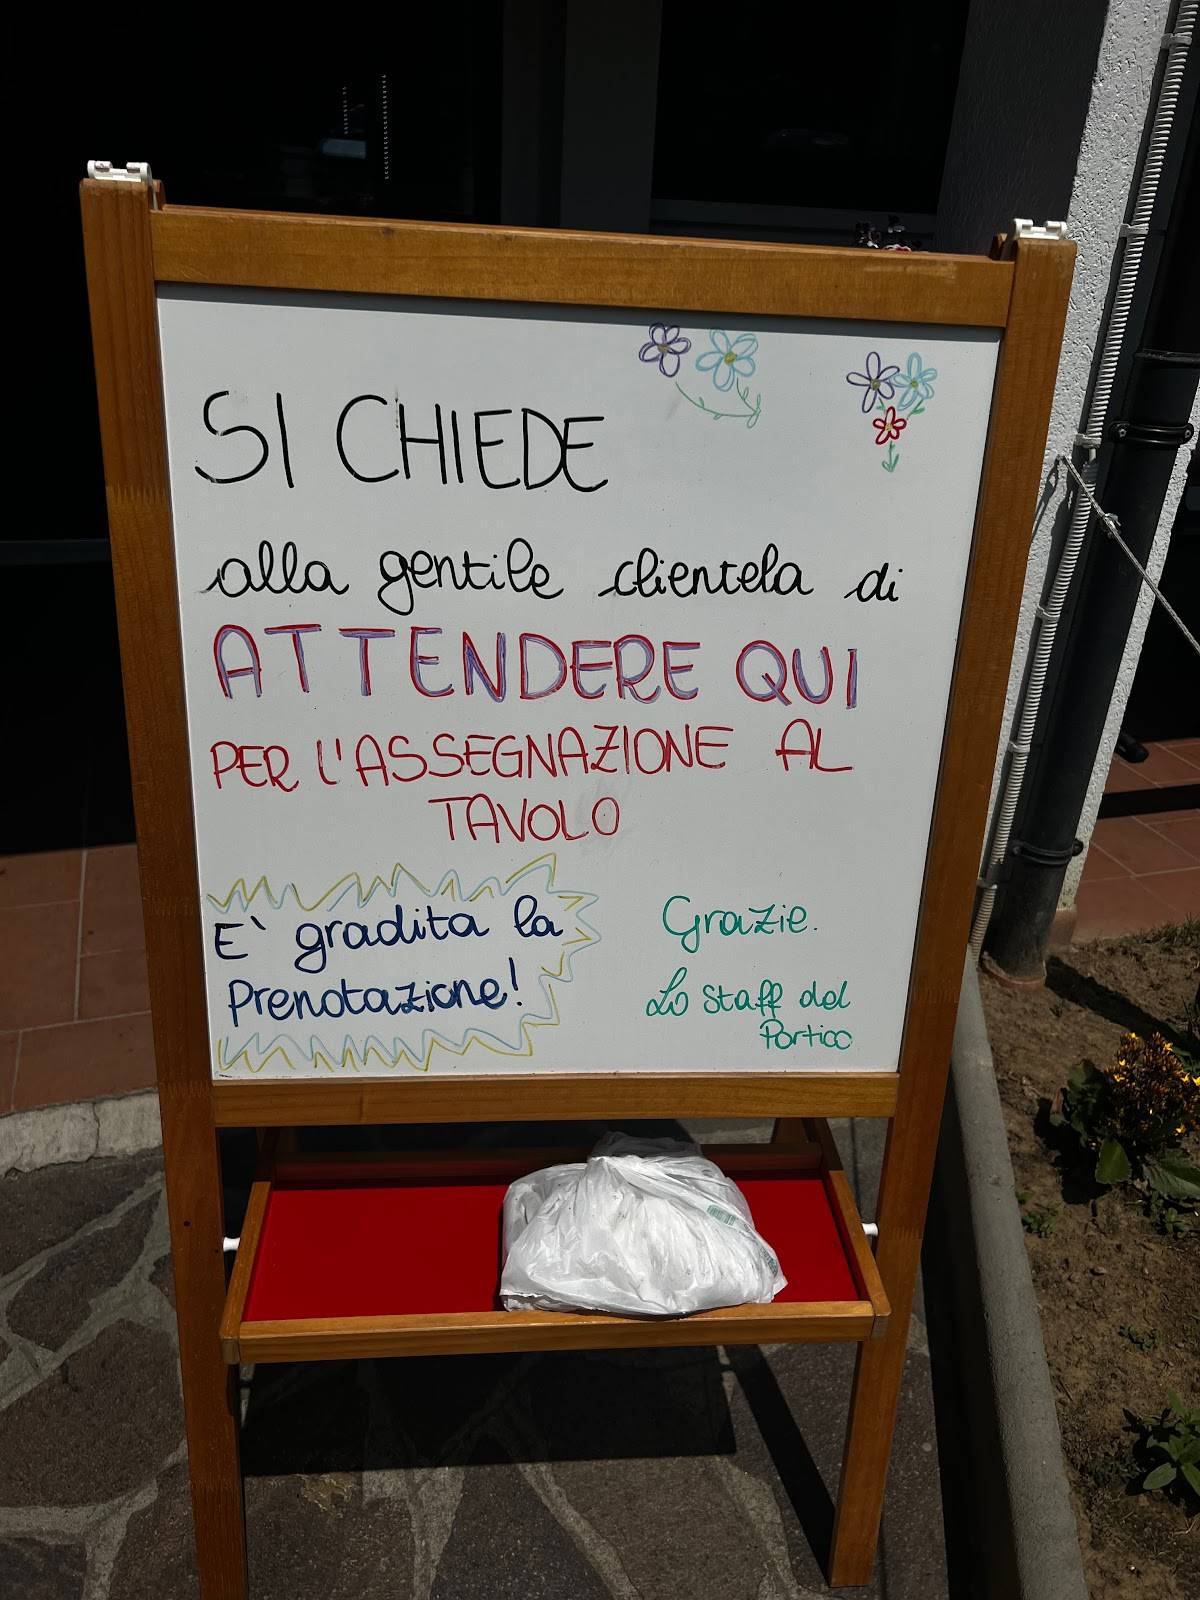 SI CHIEDE
alla gentile clientela di
ATTENDERE QUI
PER L'ASSEGNAZIONE AL
TAVOLO
E` gradita la
Prenotazione!
Grazie.
Lo staff del
Portico